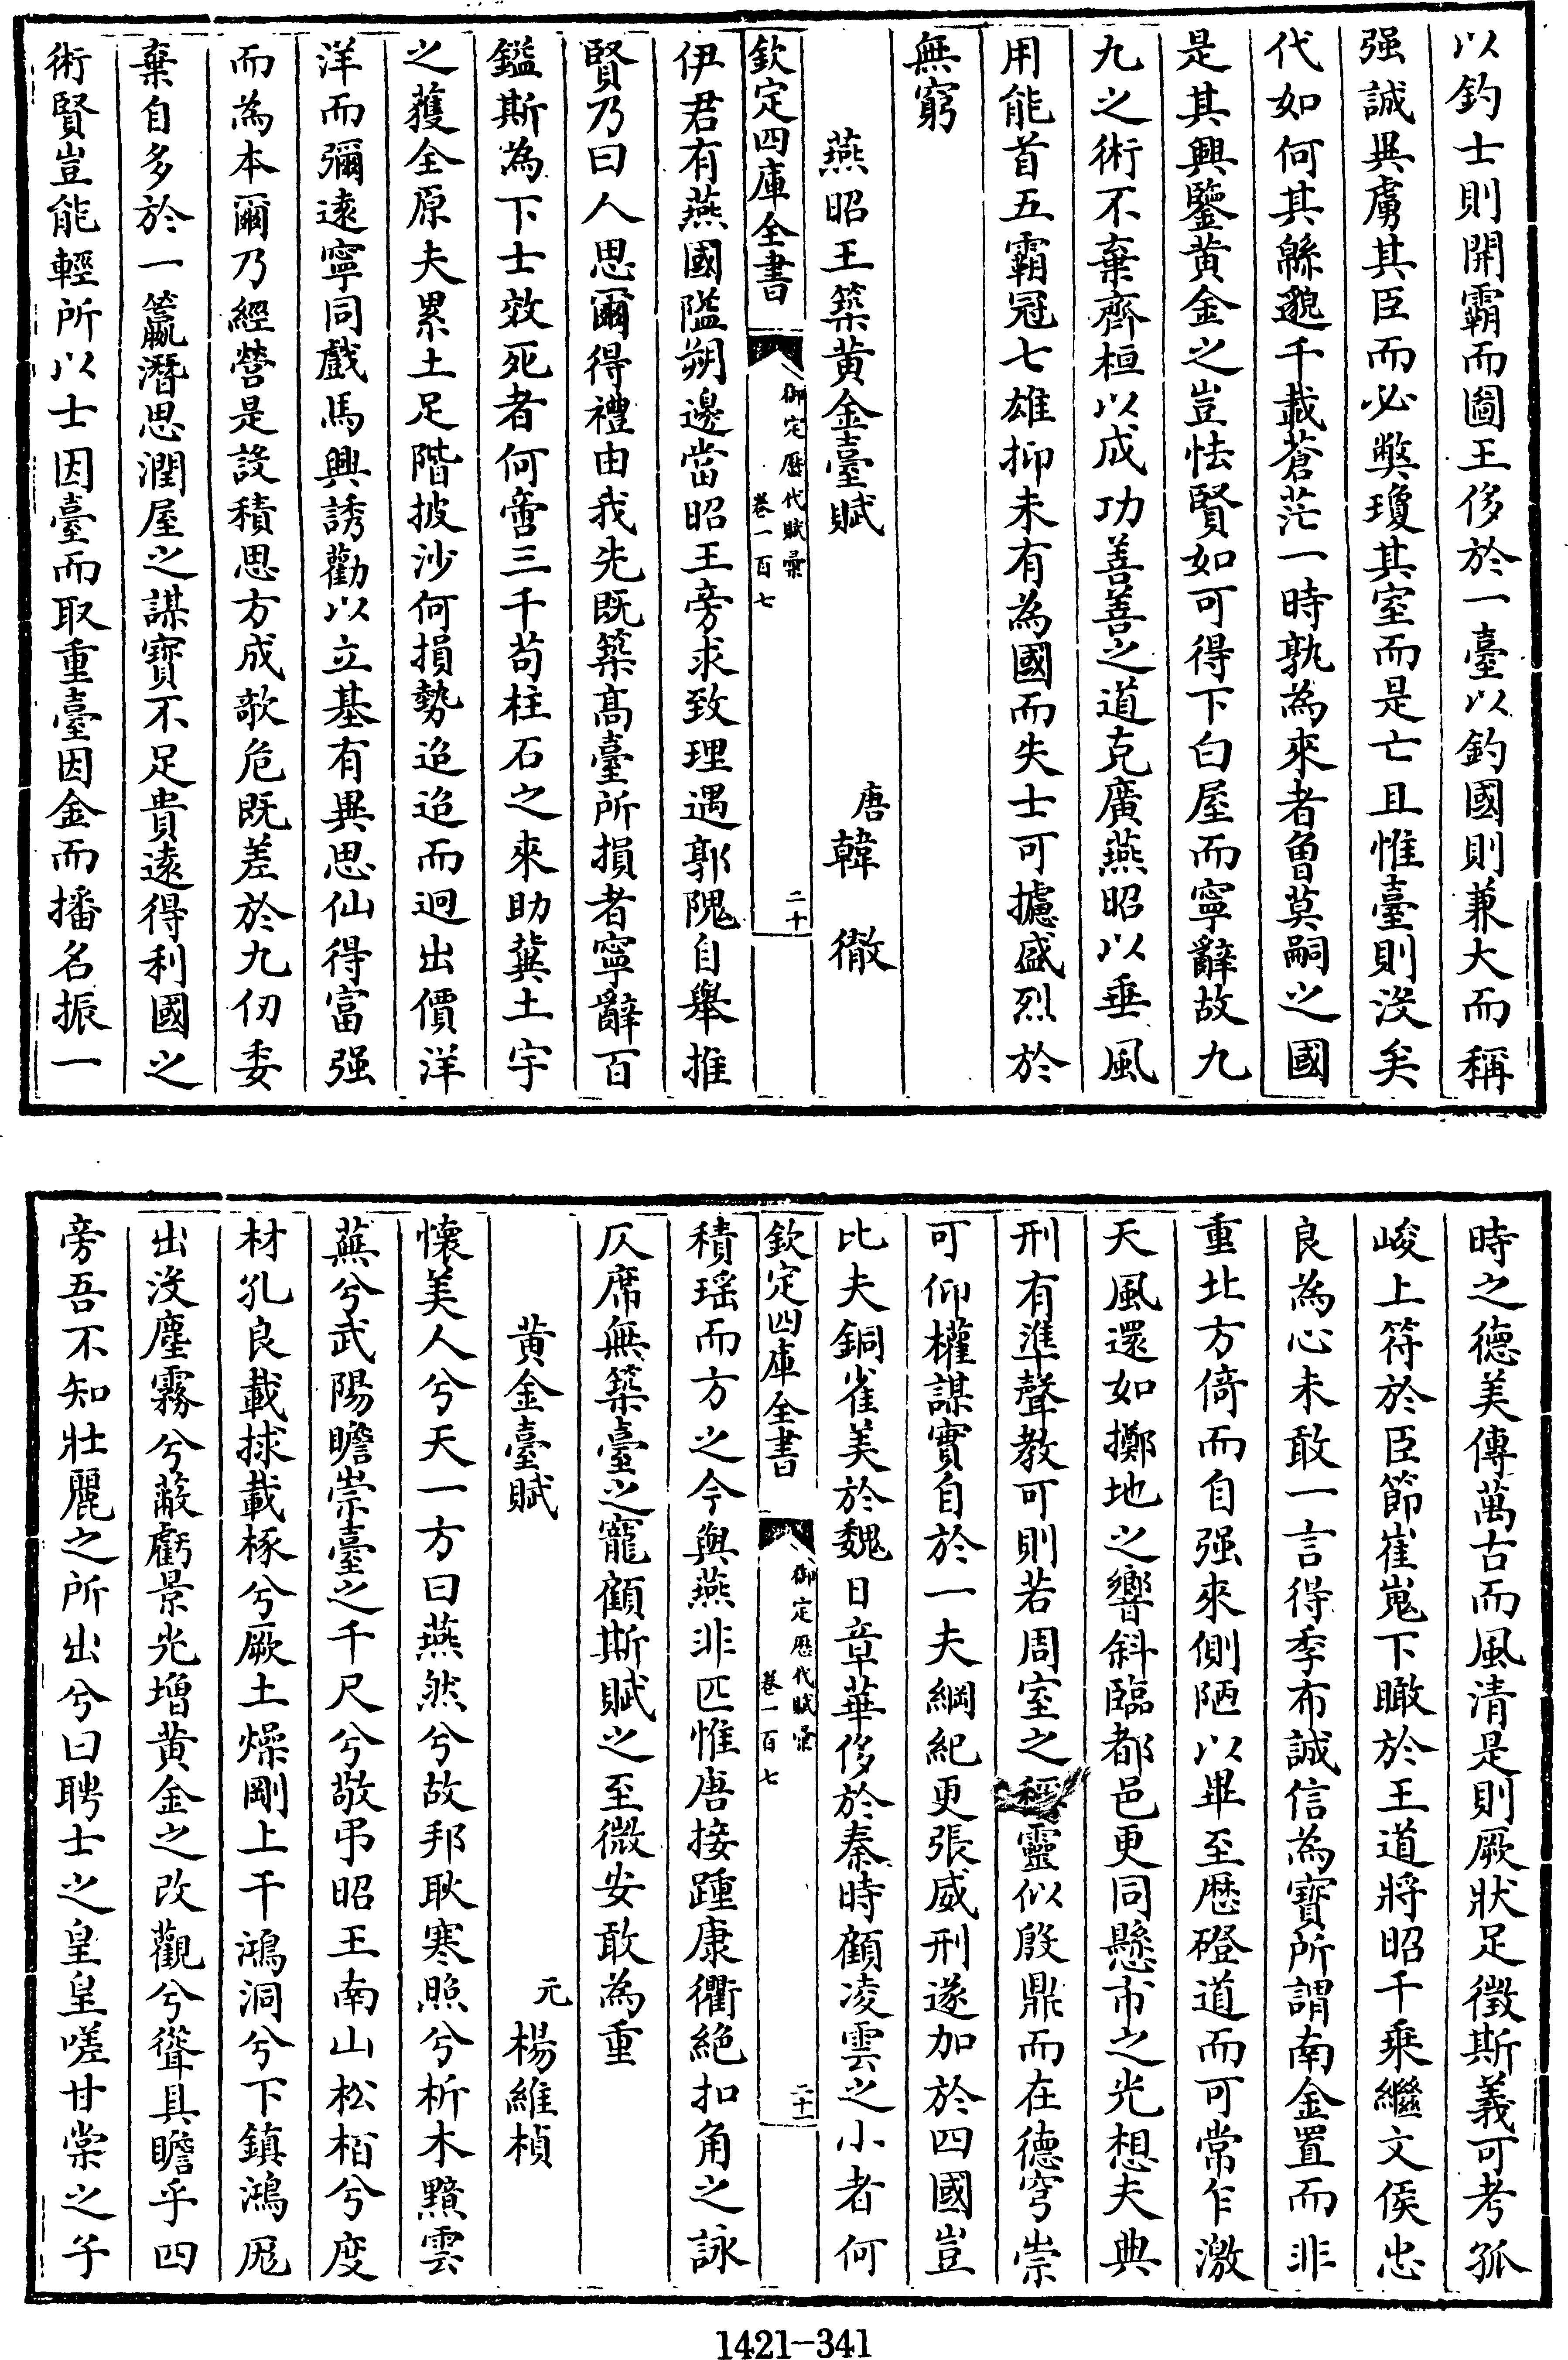 以釣士則開霸而圖王侈於一臺以釣國則兼大而稱
强誠異虜其臣而必弊瓊其室而是亡且惟臺則沒矣
代如何其緜邈千載蒼茫一時孰為來者魯莫嗣之國
是其興鑒黄金之豈怯賢如可得下白屋而寧辭故九
九之術不棄齊桓以成功善善之道克廣燕昭以垂風
用能首五霸冠七雄抑未有為國而失士可攄盛烈於
無窮
燕昭王築黄金臺賦
唐韓徹
欽定四庫全書
御定歷代賦彙
卷一百七
二十
伊君有燕國隘朔邊當昭王旁求致理遇郭隗自舉推
賢乃曰人思爾得禮由我先既築高臺所損者寧辭百
鎰斯為下士效死者何啻三千茍柱石之來助冀土宇
之獲全原夫累土足階披沙何損勢迢迢而迥出價洋
洋而彌遠寧同戲馬興誘勸以立基有異思仙得富强
而為本爾乃經營是設積思方成欹危既差於九仞委
棄自多於一籯潛思潤屋之謀寳不足貴遠得利國之
術賢豈能輕所以士因臺而取重臺因金而播名振一
時之德美傳萬古而風清是則厥狀足徵斯義可考孤
峻上符於臣節崔嵬下瞰於王道將昭千乗繼文侯忠
良為心未敢一言得季布誠信為寳所謂南金置而非
重北方倚而自强來側陋以畢至歴磴道而可常乍激
天風還如擲地之響斜臨都邑更同懸市之光想夫典
刑有準聲教可則若周室之稱靈似殷鼎而在德穹崇
可仰權謀實自於一夫綱紀更張威刑遂加於四國豈
比夫銅雀美於魏日章華侈於秦時顧凌雲之小者何
欽定四庫全書
御定歷代賦彙
卷一百七
二十一
積瑶而方之今與燕非匹惟唐接踵康衢絶扣角之詠
仄席無築臺之寵顧斯賦之至微安敢為重
黄金臺賦
元楊維楨
懷美人兮天一方曰燕然兮故邦耿寒照兮析木黯雲
蕪兮武陽瞻崇臺之千尺兮敬弔昭王南山松栢兮度
材孔良載捄載椓兮厥土燥剛上干鴻洞兮下鎮鴻厖
出沒塵霧兮蔽虧景光增黄金之改觀兮聳具瞻乎四
旁吾不知壯麗之所出兮曰聘士之皇皇嗟甘棠之子
1421-341